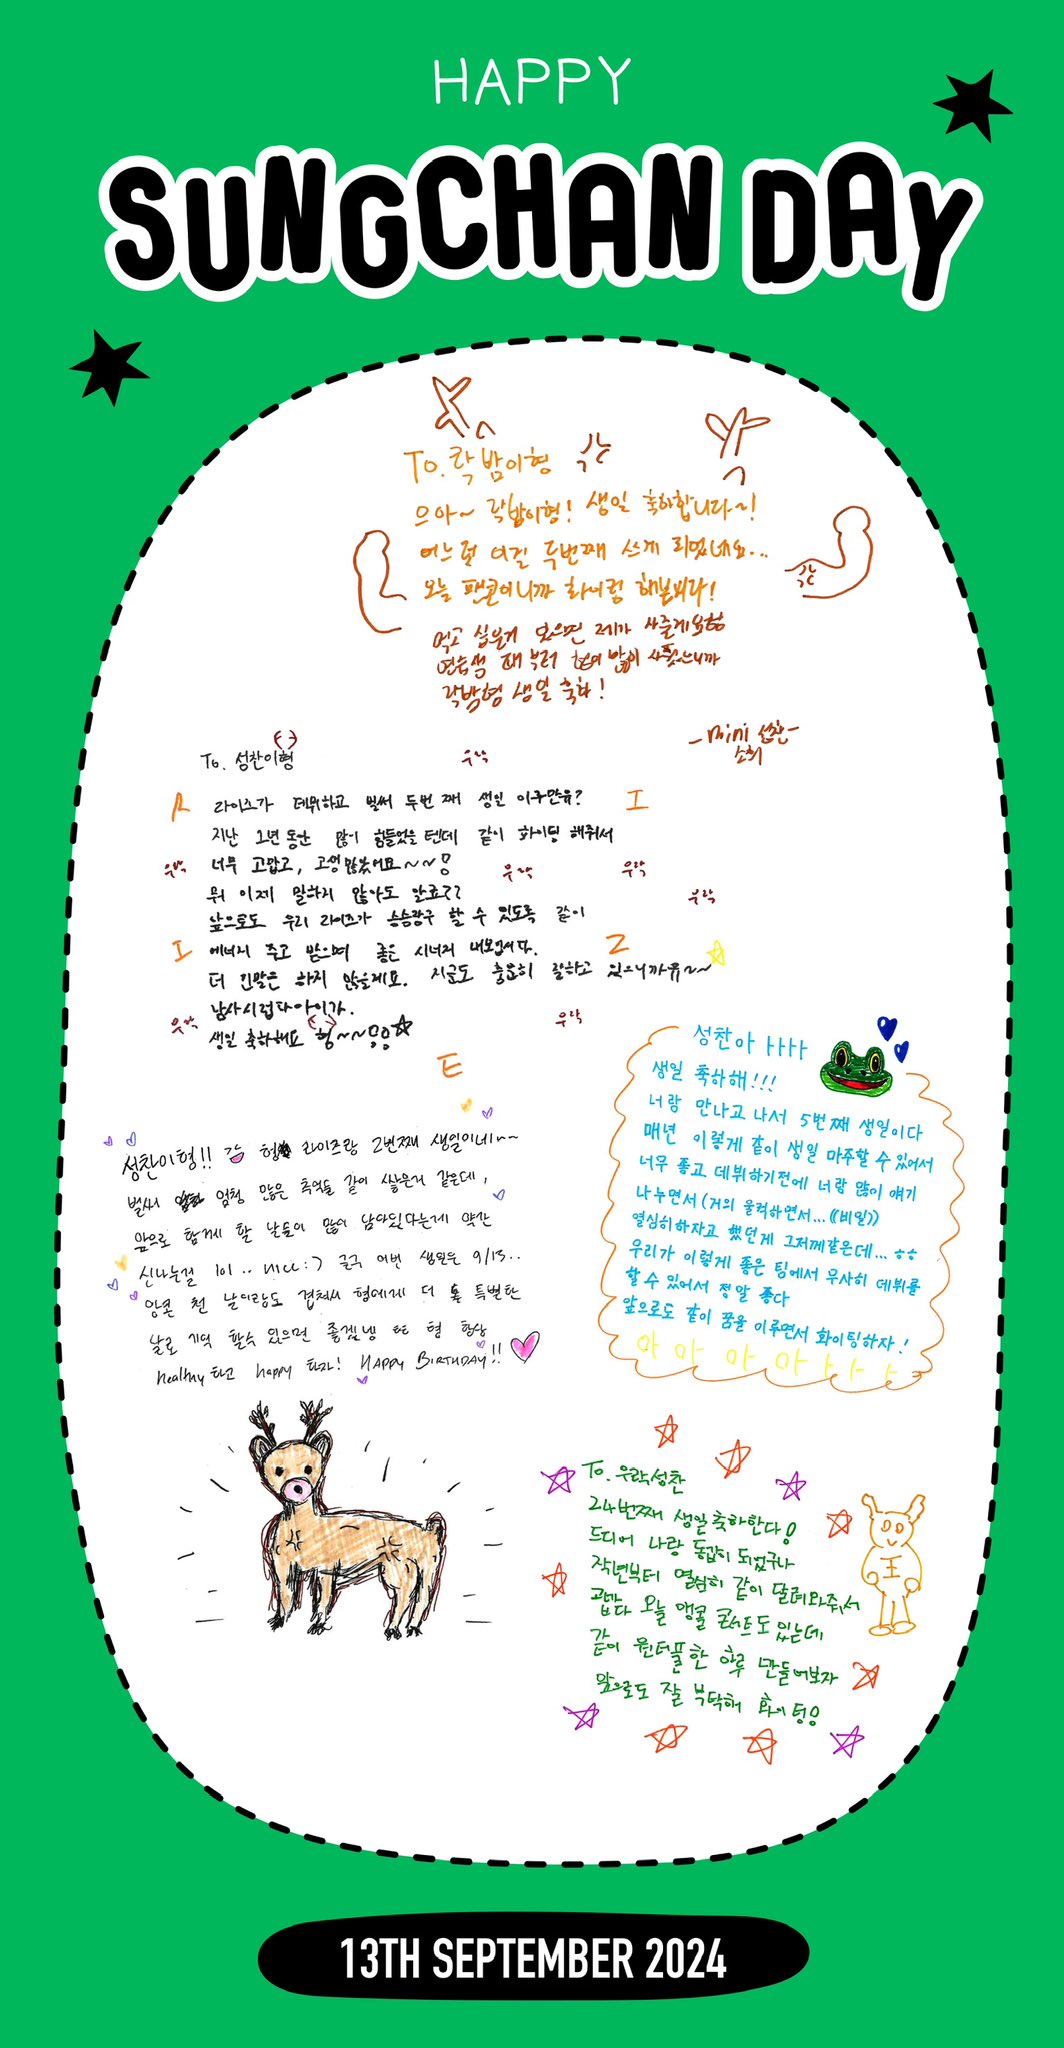 HAPPY
SUNGCHAN DAY
To. 락밤이형
으아~ 락밤이형! 생일 축하합니다~!
어느덧 이걸 두번째 쓰게 되었네요...
오늘 팬콘이니까 화이팅 해봅시다!
먹고 싶은거 있으면 제가 사줄게요형
연습생 때부터 형이 많이 사줬으니까
락밤형 생일 축하!
-mini 성찬-
소희
To. 성찬이형
우락
R
라이즈가 데뷔하고 벌써 두번 째 생일 이구만유?
I
지난 1년 동안 많이 힘들었을 텐데 같이 화이팅 해줘서
우락
너무 고맙고, 고생 많았어요~~!
우락
우락
뭐 이제 말하지 않아도 알죠??
우락
앞으로도 우리 라이즈가 승승장구 할 수 있도록 같이
I
에너지 주고 받으며 좋은 시너지 내보입시다.
Z
더 긴말은 하지 않을게요. 지금도 충분히 잘하고 있으니까유~~
남사시럽다아이가.
우락
우락
생일 축하해요 형~~!!
E
성찬아ㅏㅏㅏㅏ
생일 축하해!!!
너랑 만나고 나서 5번째 생일이다
매년 이렇게 같이 생일 마주할 수 있어서
너무 좋고 데뷔하기전에 너랑 많이 얘기
나누면서 (거의 울컥하면서...((비밀))
열심히하자고 했던게 그저께같은데... ㅎㅎ
우리가 이렇게 좋은 팀에서 무사히 데뷔를
할 수 있어서 정말 좋다
앞으로도 같이 꿈을 이루면서 화이팅하자!
아 아 아 아 ㅏ ㅏ ㅏ
성찬이형!! 형 라이즈랑 2번째 생일이네!~~
벌써 엄청 많은 추억들 같이 쌓은거 같은데,
앞으로 함께 할 날들이 많이 남아있다는게 약간
신나는걸 lol .. nice :) 글구 이번 생일은 9/13..
앙콘 첫 날이랑도 겹쳐서 형에게 더 특별한
날로 기억 할수 있으면 좋겠넹 형 항상
healthy 하고 happy 하자! HAPPY BIRTHDAY!!
To. 우락성찬
24번째 생일축하한다!
드디어 나랑 동갑이 되었구나
작년부터 열심히 같이 달려와줘서
고맙다 오늘 앵콜 콘서트도 있는데
같이 원더풀한 하루 만들어보자
앞으로도 잘 부탁해 화이팅!
王
13TH SEPTEMBER 2024